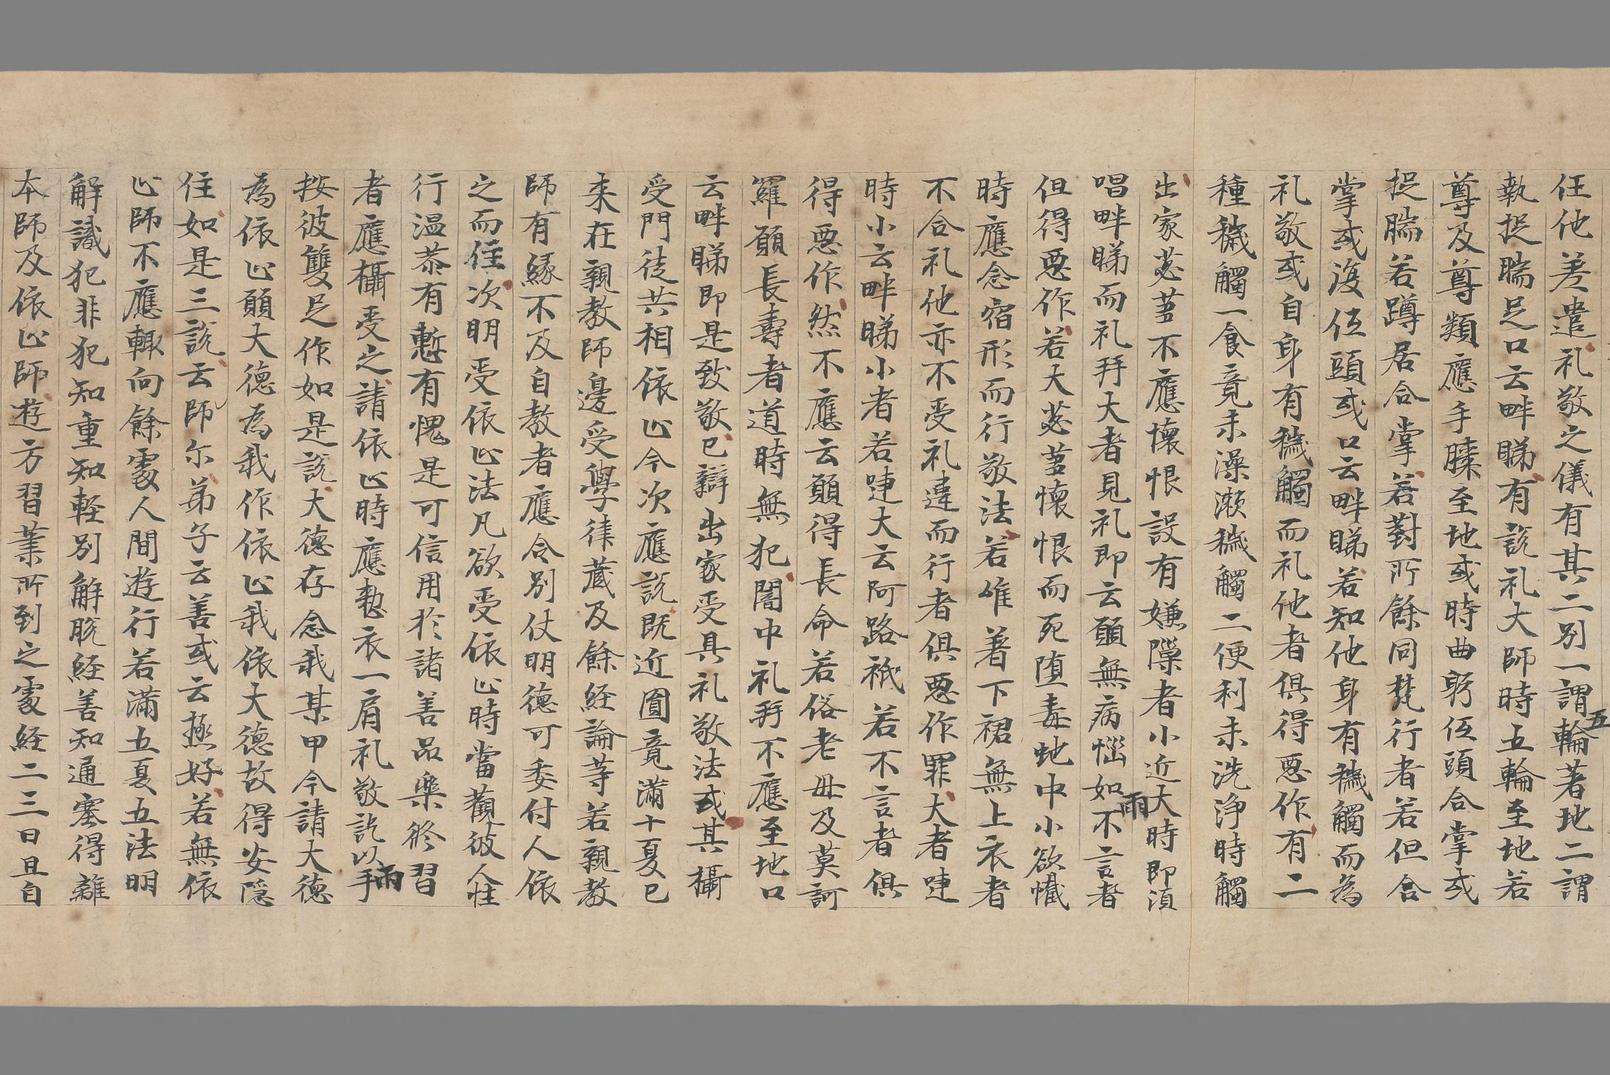 任他差遣礼敬之儀有其二別一謂五輪著地二謂
執捉腨足口云畔睇有說礼大師時五輪至地若
尊及尊類應手膝至地或時曲躬伍頭合掌或
捉腨若蹲居合掌若對所餘同梵行者若但合
掌或復伍頭或口云畔睇若知他身有穢觸而為
礼敬或自身有穢觸而礼他者俱得惡作有二
種穢觸一食竟未澡漱穢觸二便利未洗淨時觸
出家苾蒭不應懷恨設有嫌隙者小近大時即須
唱畔睇而礼拜大者見礼即云願無病惱如不雨言者
但得惡作若大苾蒭懷恨而死墮毒虵中小欲懺
時應念宿形而行敬法若唯著下裙無上衣者
不合礼他亦不受礼違而行者俱惡作罪大者嚏
時小云畔睇小者若嚏大云阿路祇若不言者俱
得惡作然不應云願得長命若俗老母及莫訶
羅願長壽者道時無犯闇中礼拜不應至地口
云畔睇即是致敬已辯出家受具礼敬法或其攝
受門徒共相依止今次應說既近圓竟滿十夏已
来在親教師邊受學律藏及餘経論等若親教
師有緣不及自教者應令別仗明德可委付人依
之而住次明受依止法凡欲受依止時當觀彼人性
行温恭有慙有愧是可信用於諸善品樂修習
者應攝受之請依止時應整衣一肩礼敬訖以雨手
按彼雙足作如是說大德存念我某甲今請大德
為依止願大德為我作依止我依大德故得安隱
住如是三說云師尓弟子云善或云極好若無依
止師不應輒向餘處人間遊行若滿五夏五法明
解識犯非犯知重知輕別解脫経善知通塞得離
本師及依止師遊方習業所到之處経二三日且自